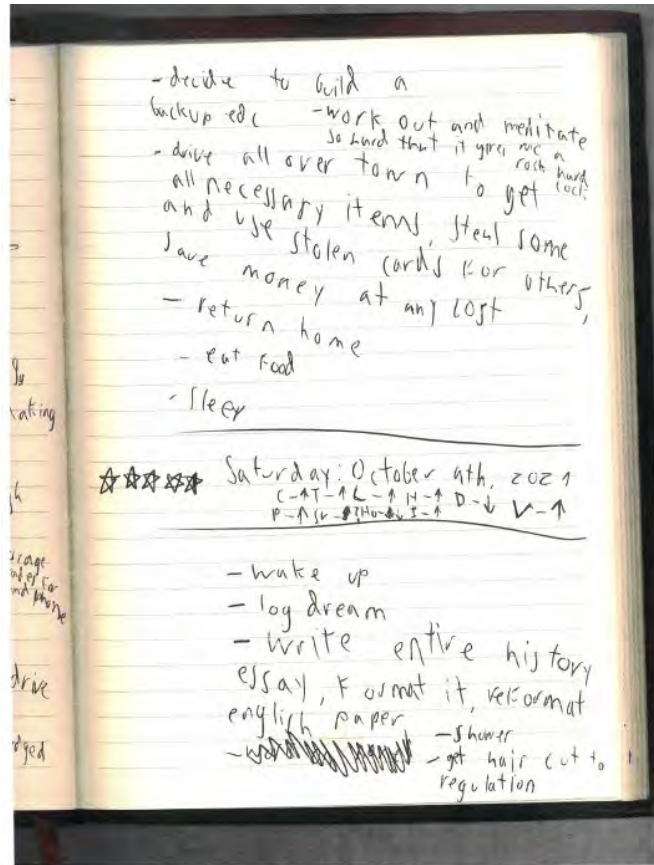 - decide to build a
backup edc - work out and meditate
so hard that it gives me a
rock hard
cock
- drive all over town to get
all necessary items, steal some
and use stolen cards for others,
save money at any cost
- return home
- eat food
- sleep
Saturday: October 9th, 2021
C-↑ T-↑ L-↑ H-↑ D-↓ V-↑
I-↑
- wake up
- log dream
- write entire history
essay, format it, reformat
english paper
- shower
- get hair cut to
regulation
aking
drive
dged
and phone